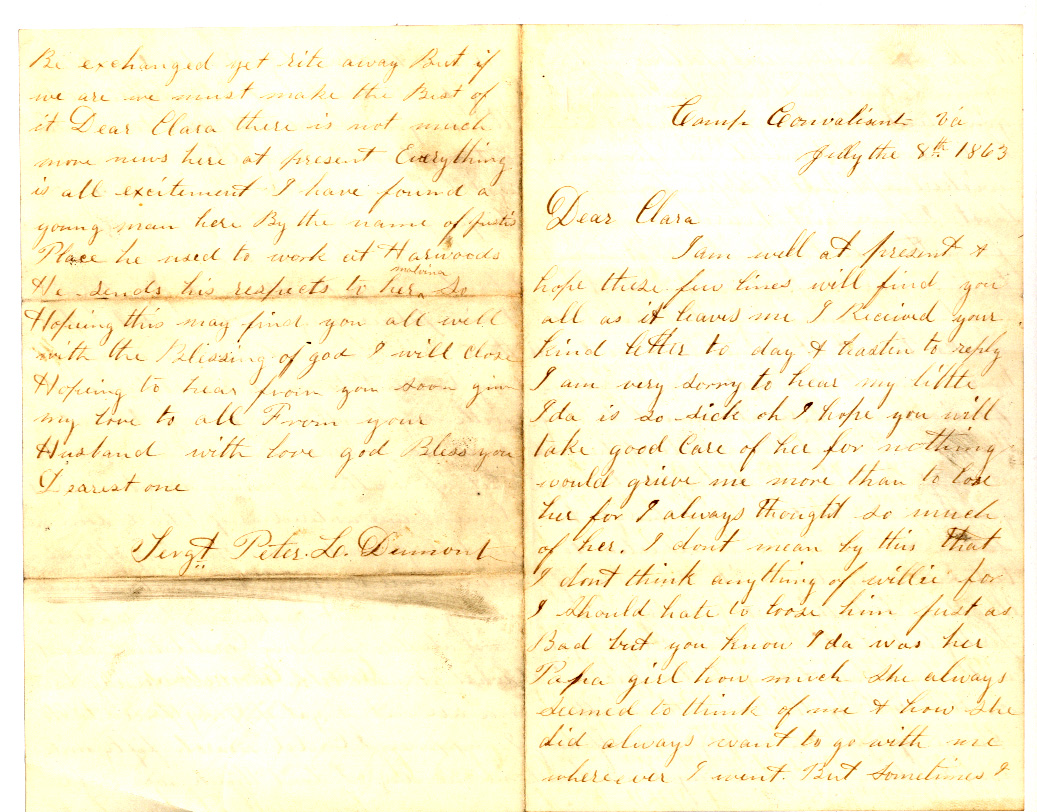 Camp Convalisent Va
July the 8th 1863
Dear Clara
I am well at present &
hope these few lines will find you
all as it leaves me I Recieved your
kind letter to day & hasten to reply
I am very sorry to hear my little
Ida is so sick oh I hope you will
take good Care of her for nothing
would grieve me more than to lose
her for I always thought so much
of her. I dont mean by this that
I dont think anything of willie for
I should hate to loose him just as
Bad but you know Ida was her
Papa girl how much she always
seemed to think of me & how she
did always want to go with me
where ever I went. But sometimes I
Be exchanged yet rite away But if
we are we must make the Best of
it Dear Clara there is not much
more news here at present Everything
is all excitement I have found a
young man here By the name of
Place he used to work at Harwoods
malvina
He sends his respects to her so
Hopeing this may find you all well
with the Blessing of god I will close
Hopeing to hear from you soon give
my love to all From your
Husband with love god Bless you
Dearest one
Sergt Peter. L. Dumont